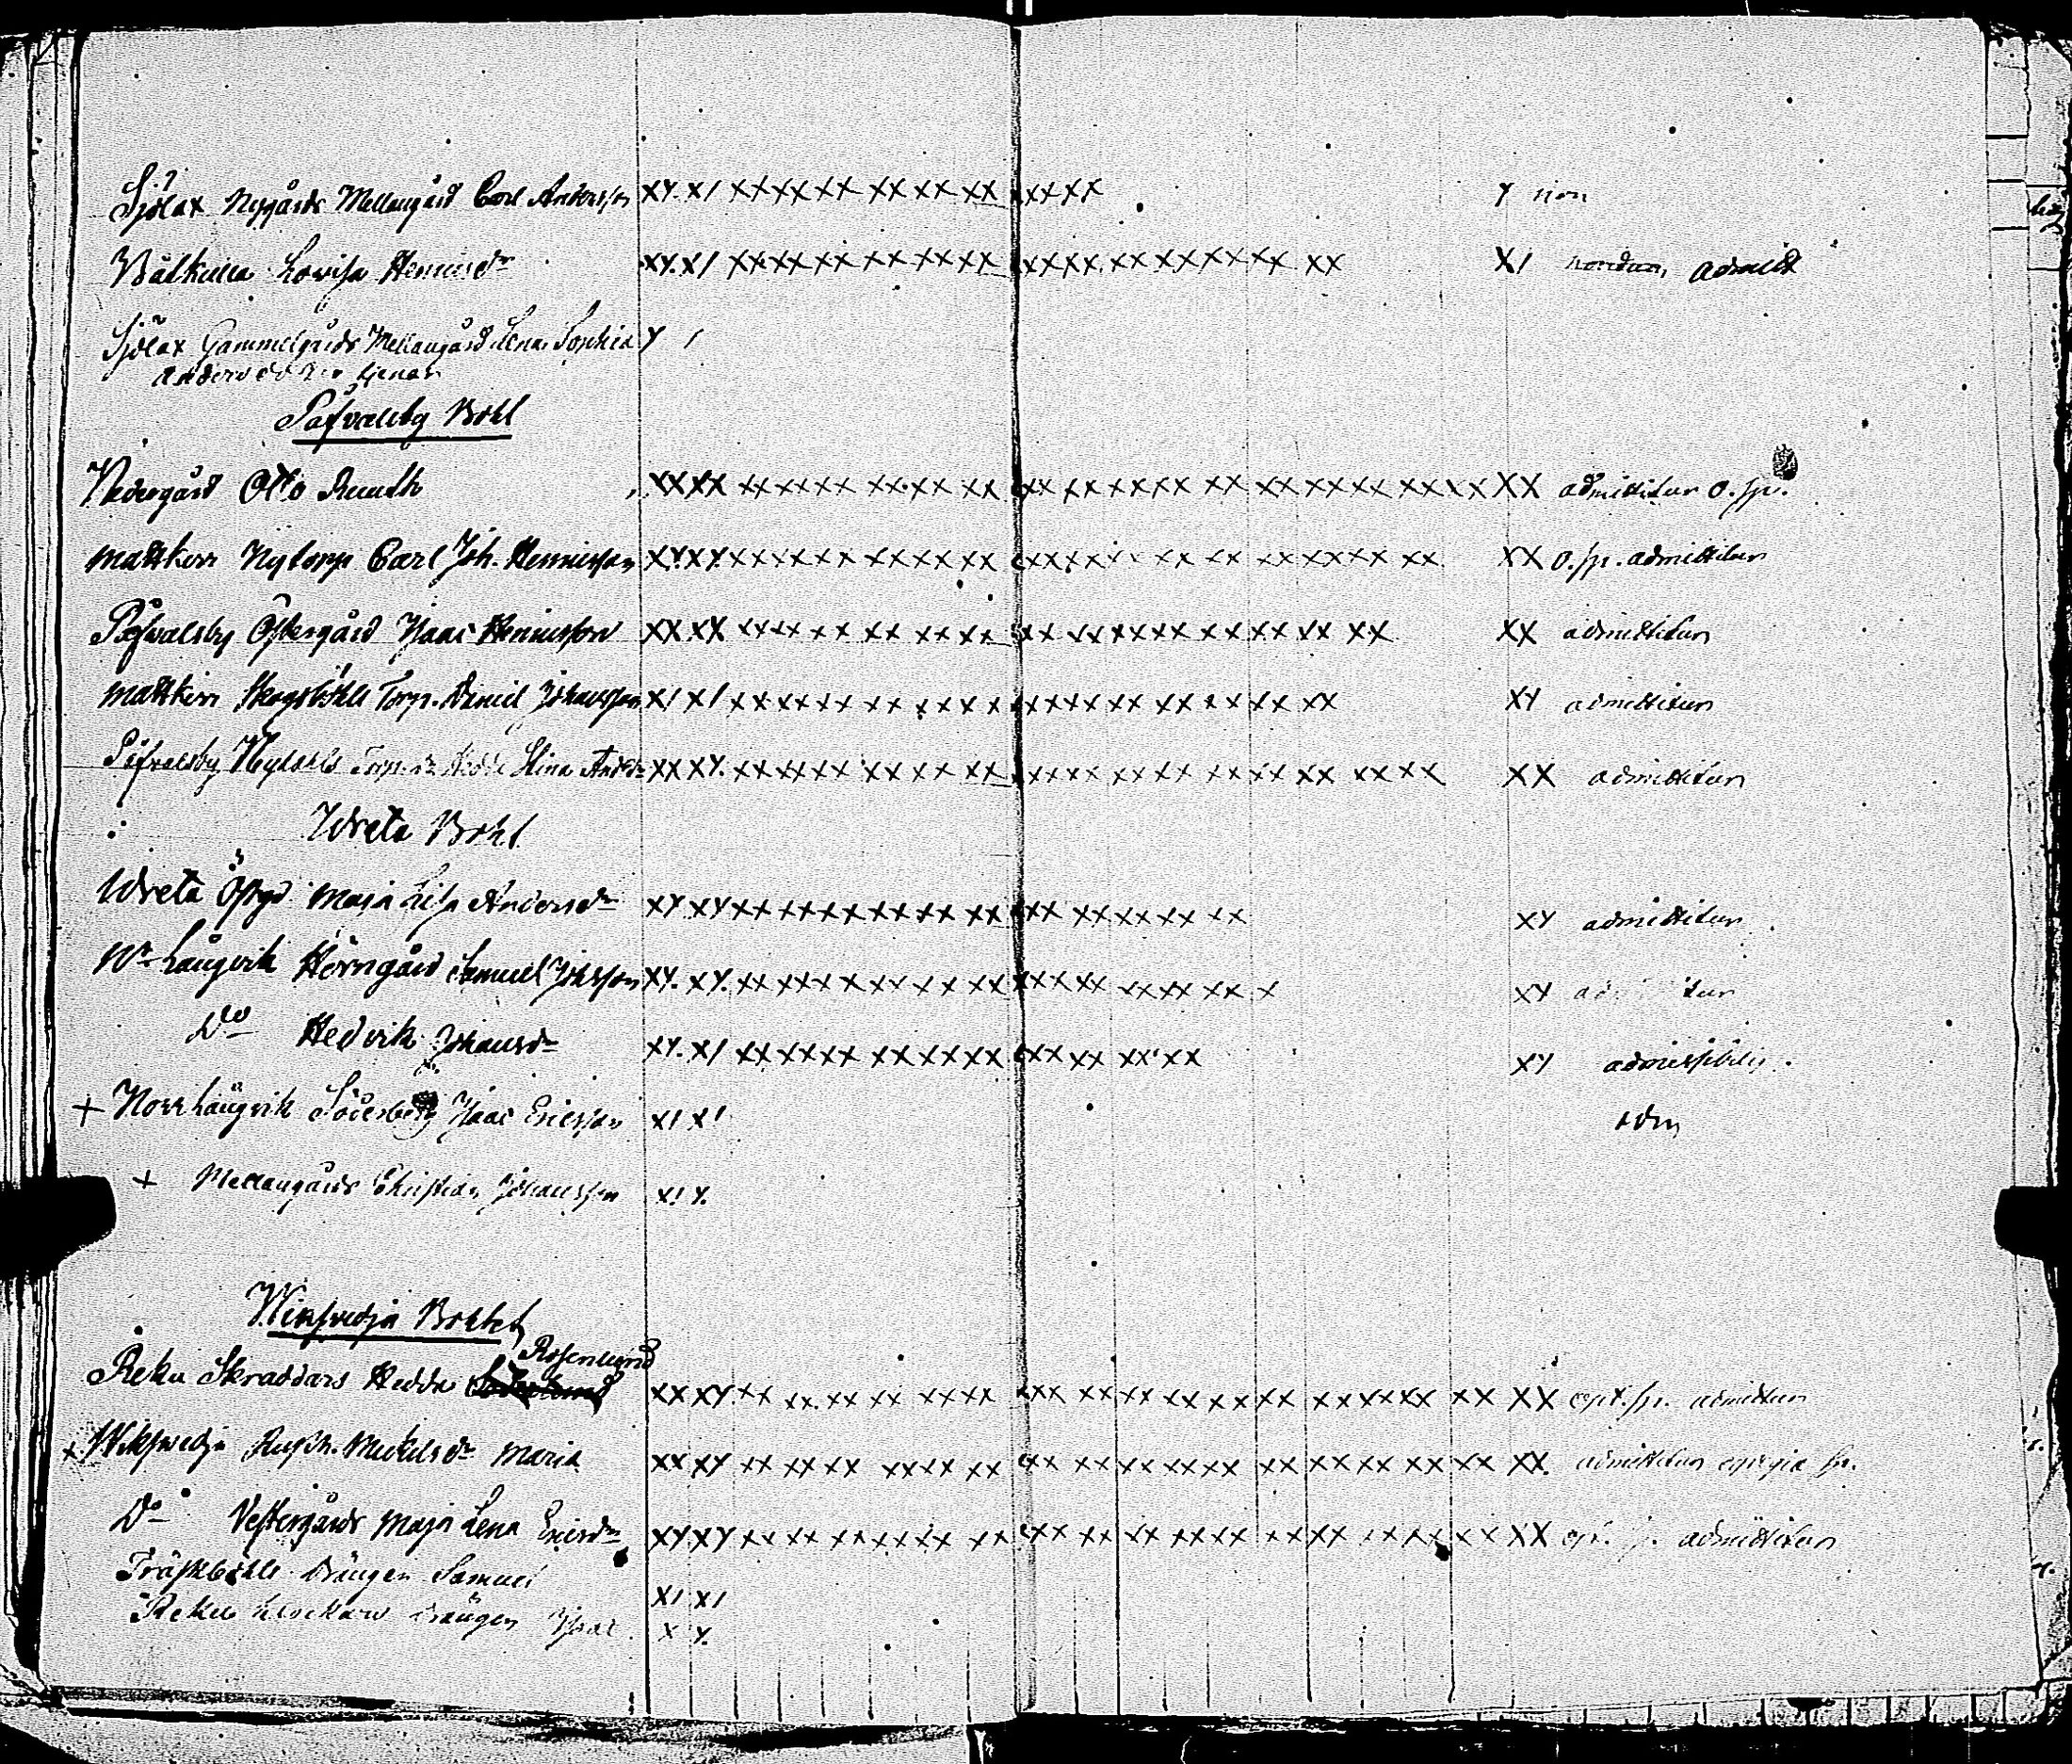 Sjölax Nygårds Mellangård Carl Andersson XY. X/ XX XX XX XX XX XX XX XX Y non
Lovisa Henricsdr XY. X/ XX XX XX XX XX XX XX XX XX XX XX XX XX X/ nondum, admitt
Sjölax Gammelgårds Mellangård Lena Sophia Y /
Anders
Päfvalsby Bohl
Nedergård Otto XX XX XX XX XX XX XX XX XX XX XX XX XX XX XX XX XX XX XX admittitur o. sp.
Mattkerr Nytorp Carl Joh. Henricsson XY. XY. XX XX XX XX XX XX XX XX XX XX XX XX XX XX XX XX o. sp. admittitur
Päfvalsby Östergård Isaac Henricsson XX XX XX XX XX XX XX XX XX XX XX XX XX XX XX admittitur
Mattkerr Skogsböhle Torp. Daniel Johansson X/ X/ XX XX XX XX XX XX XX XX XX XX XX XX XY admittitur
Päfvalsby Torp. Stina XX XY. XX XX XX XX XX XX XX XX XX XX XX XX XX XX XX admittitur
Wreta Bohl
Wreta Östgd Maja Lisa Andersdr XY XY XX XX XX XX XX XX XX XX XX XX XX XY admittitur
Nr Långvik Hörngård Samuel Johsson XY. XY. XX XX XX XX XX XX XX XX XX XX XX X XY
Do Hedvik Johansdr XY. X/ XX XX XX XX XX XX XX XX XX XX XY admissibilis.
+ Norrlångvik Söderby Isaac Ericsson X/ X/ adm
+ Mellangårds Christian Johansson X/ Y.
Wiksvedja Bohlet
Rosenlund
Reku Skräddars Hedda XX XY. XX XX XX XX XX XX XX XX XX XX XX XX XX XX XX XX XX opt. sp. admittitur
+ Wiksvedja Rusth. Mickelsdr Maria XX XY XX XX XX XX XX XX XX XX XX XX XX XX XX XX XX XX XX. admittitur egregia sp.
Do Vestergårds Maja Lena Ericsdr XY XY XX XX XX XX XX XX XX XX XX XX XX XX XX XX XX XX XX opt. sp. admittitur
Träskböhle drängen Samuel X/ X/
Reku Klockars drängen Isaac X Y.